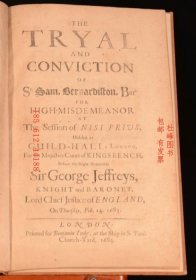 THE
TRYAL
AND
CONVICTION
OF
Sr Sam. Bernardiston, Bar.
FOR
HIGH-MISDEMEANOR
AT
The Session of NISI PRIUS,
Holden at
GUILD-HALL, London,
For His Majesties Court of KINGS BENCH,
Before the Right Honourable
Sir George Jeffreys,
KNIGHT and BARONET,
Lord Chief Justice of ENGLAND,
On Thursday, Feb. 14. 1683.
LONDON,
Printed for Benjamin Tooke, at the Ship in St. Paul
Church-Yard, 1684.
杜峰图书
包邮 有发票